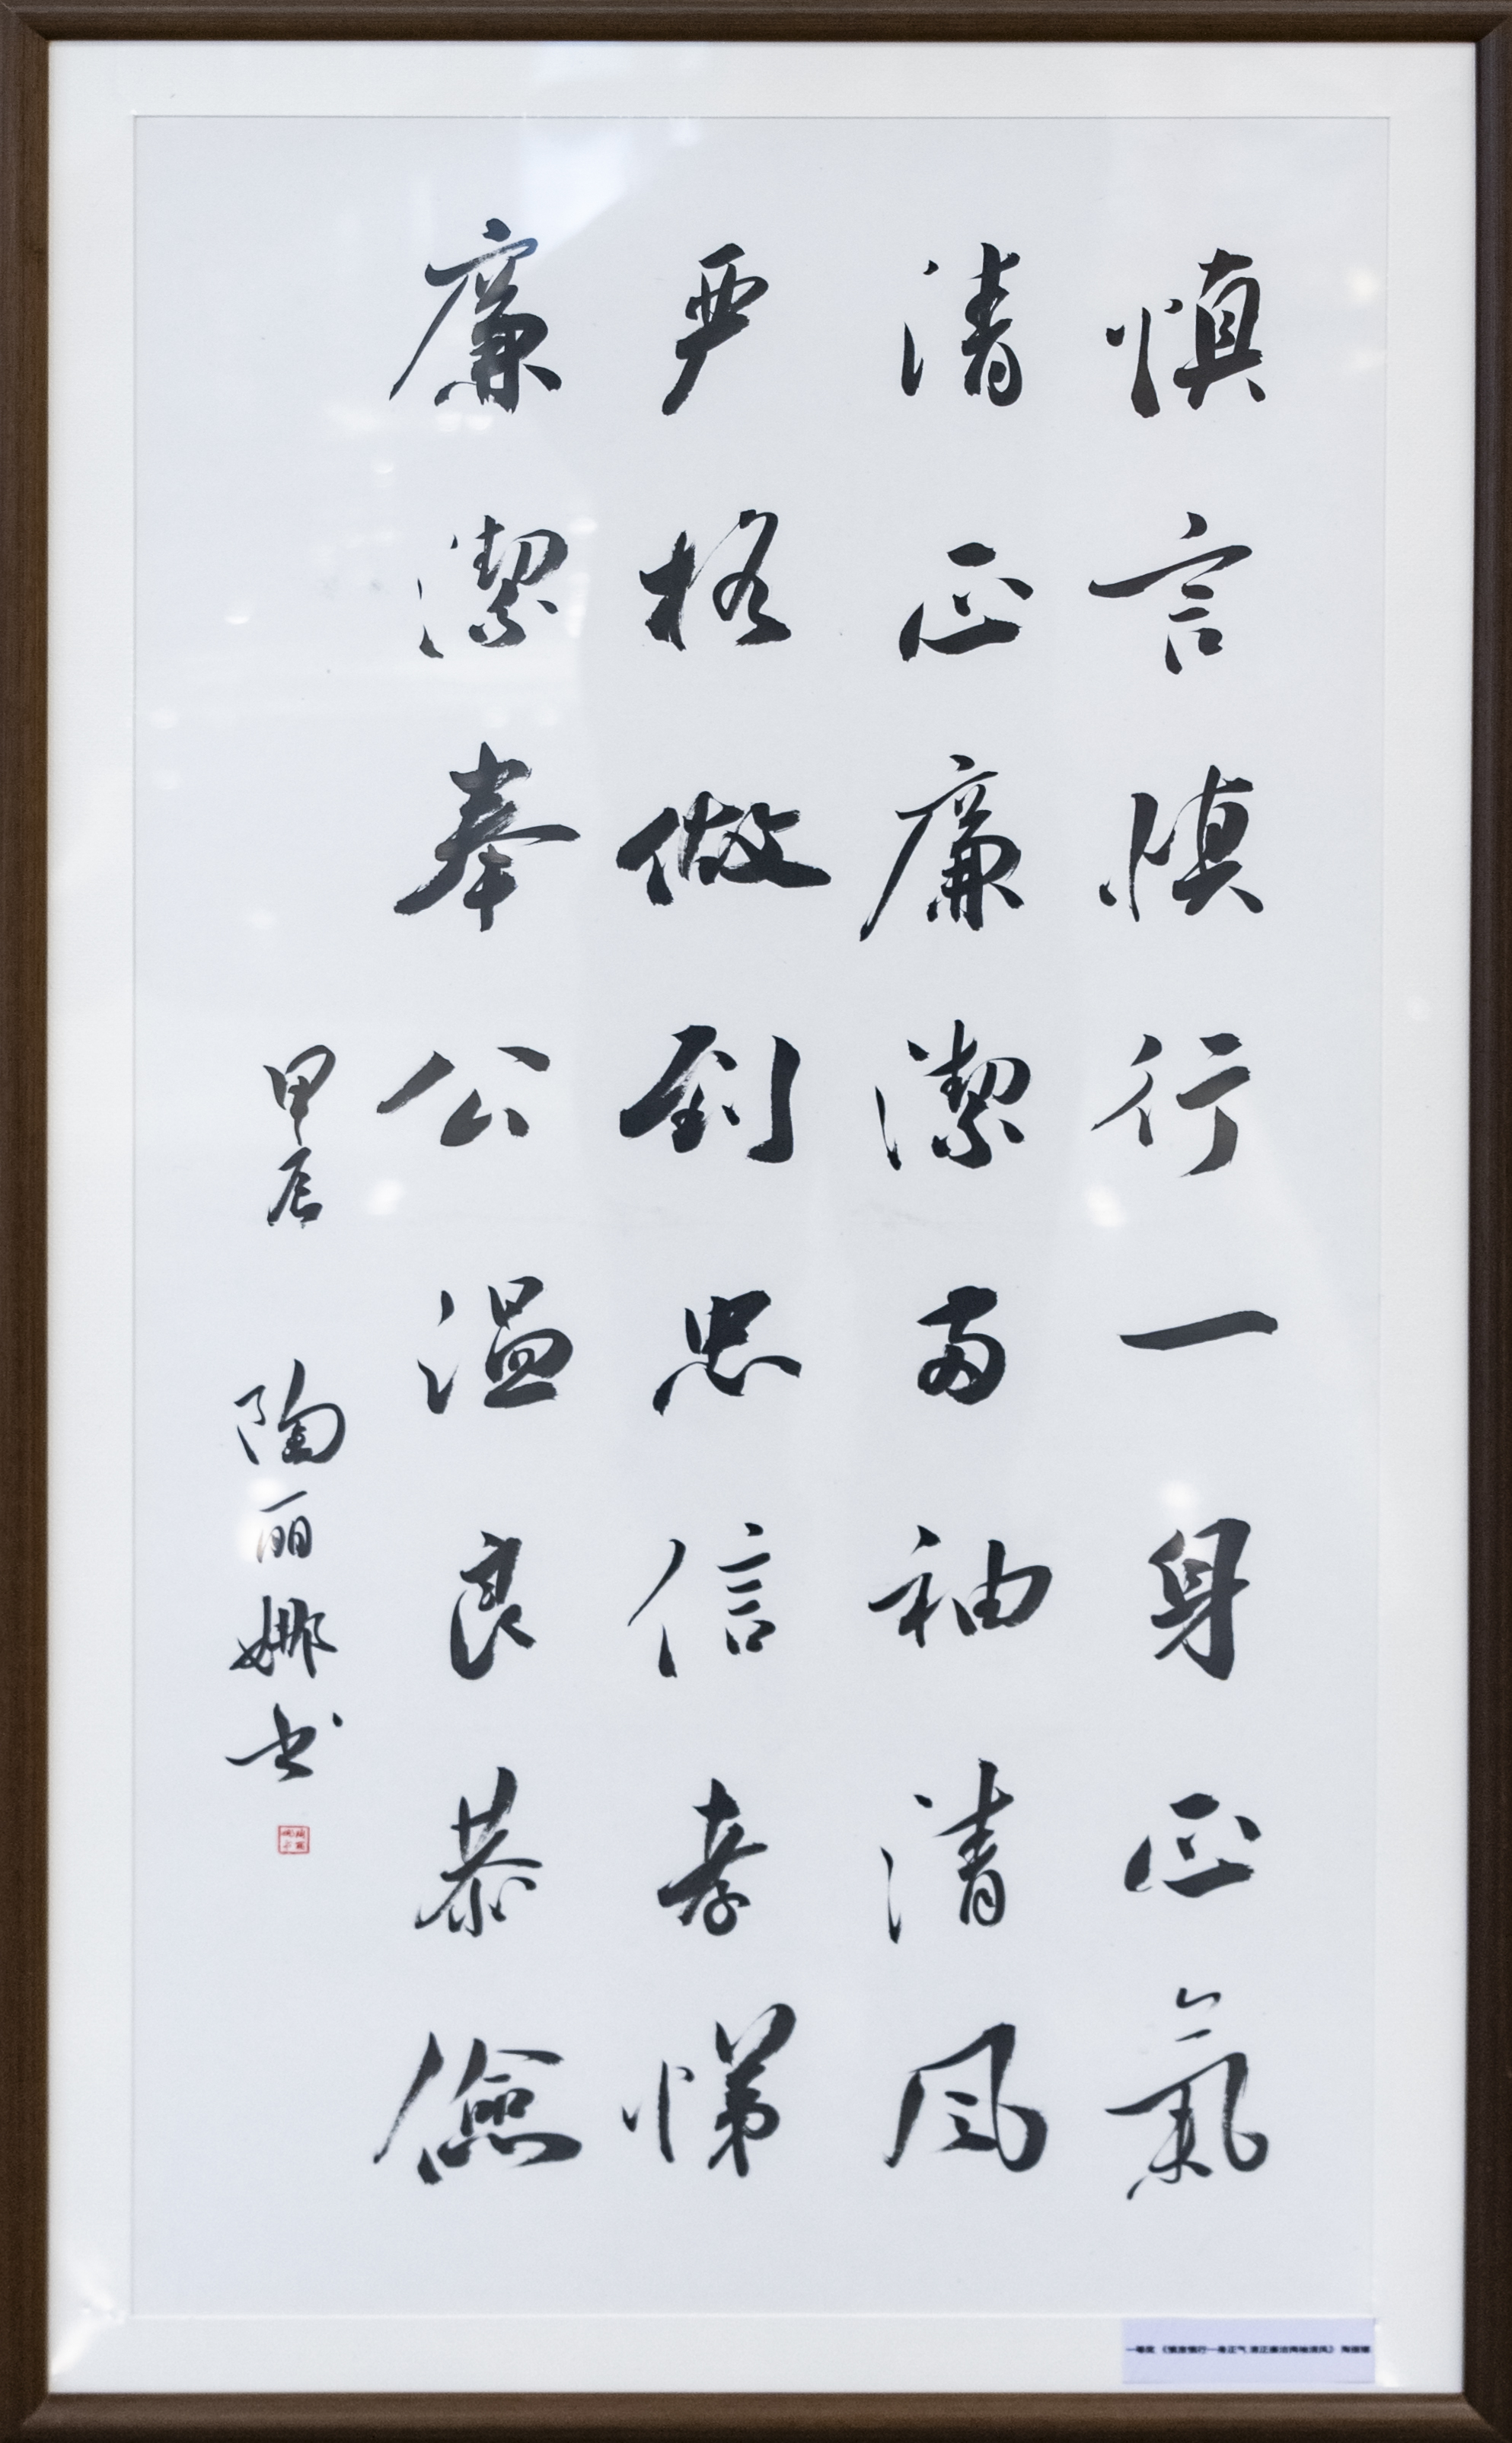 慎言慎行一身正氣
清正廉潔两袖清风
严格做到忠信孝悌
廉潔奉公温良恭儉
甲辰 陶丽娜书
一等奖 《慎言慎行一身正气 清正廉洁两袖清风》 陶丽娜